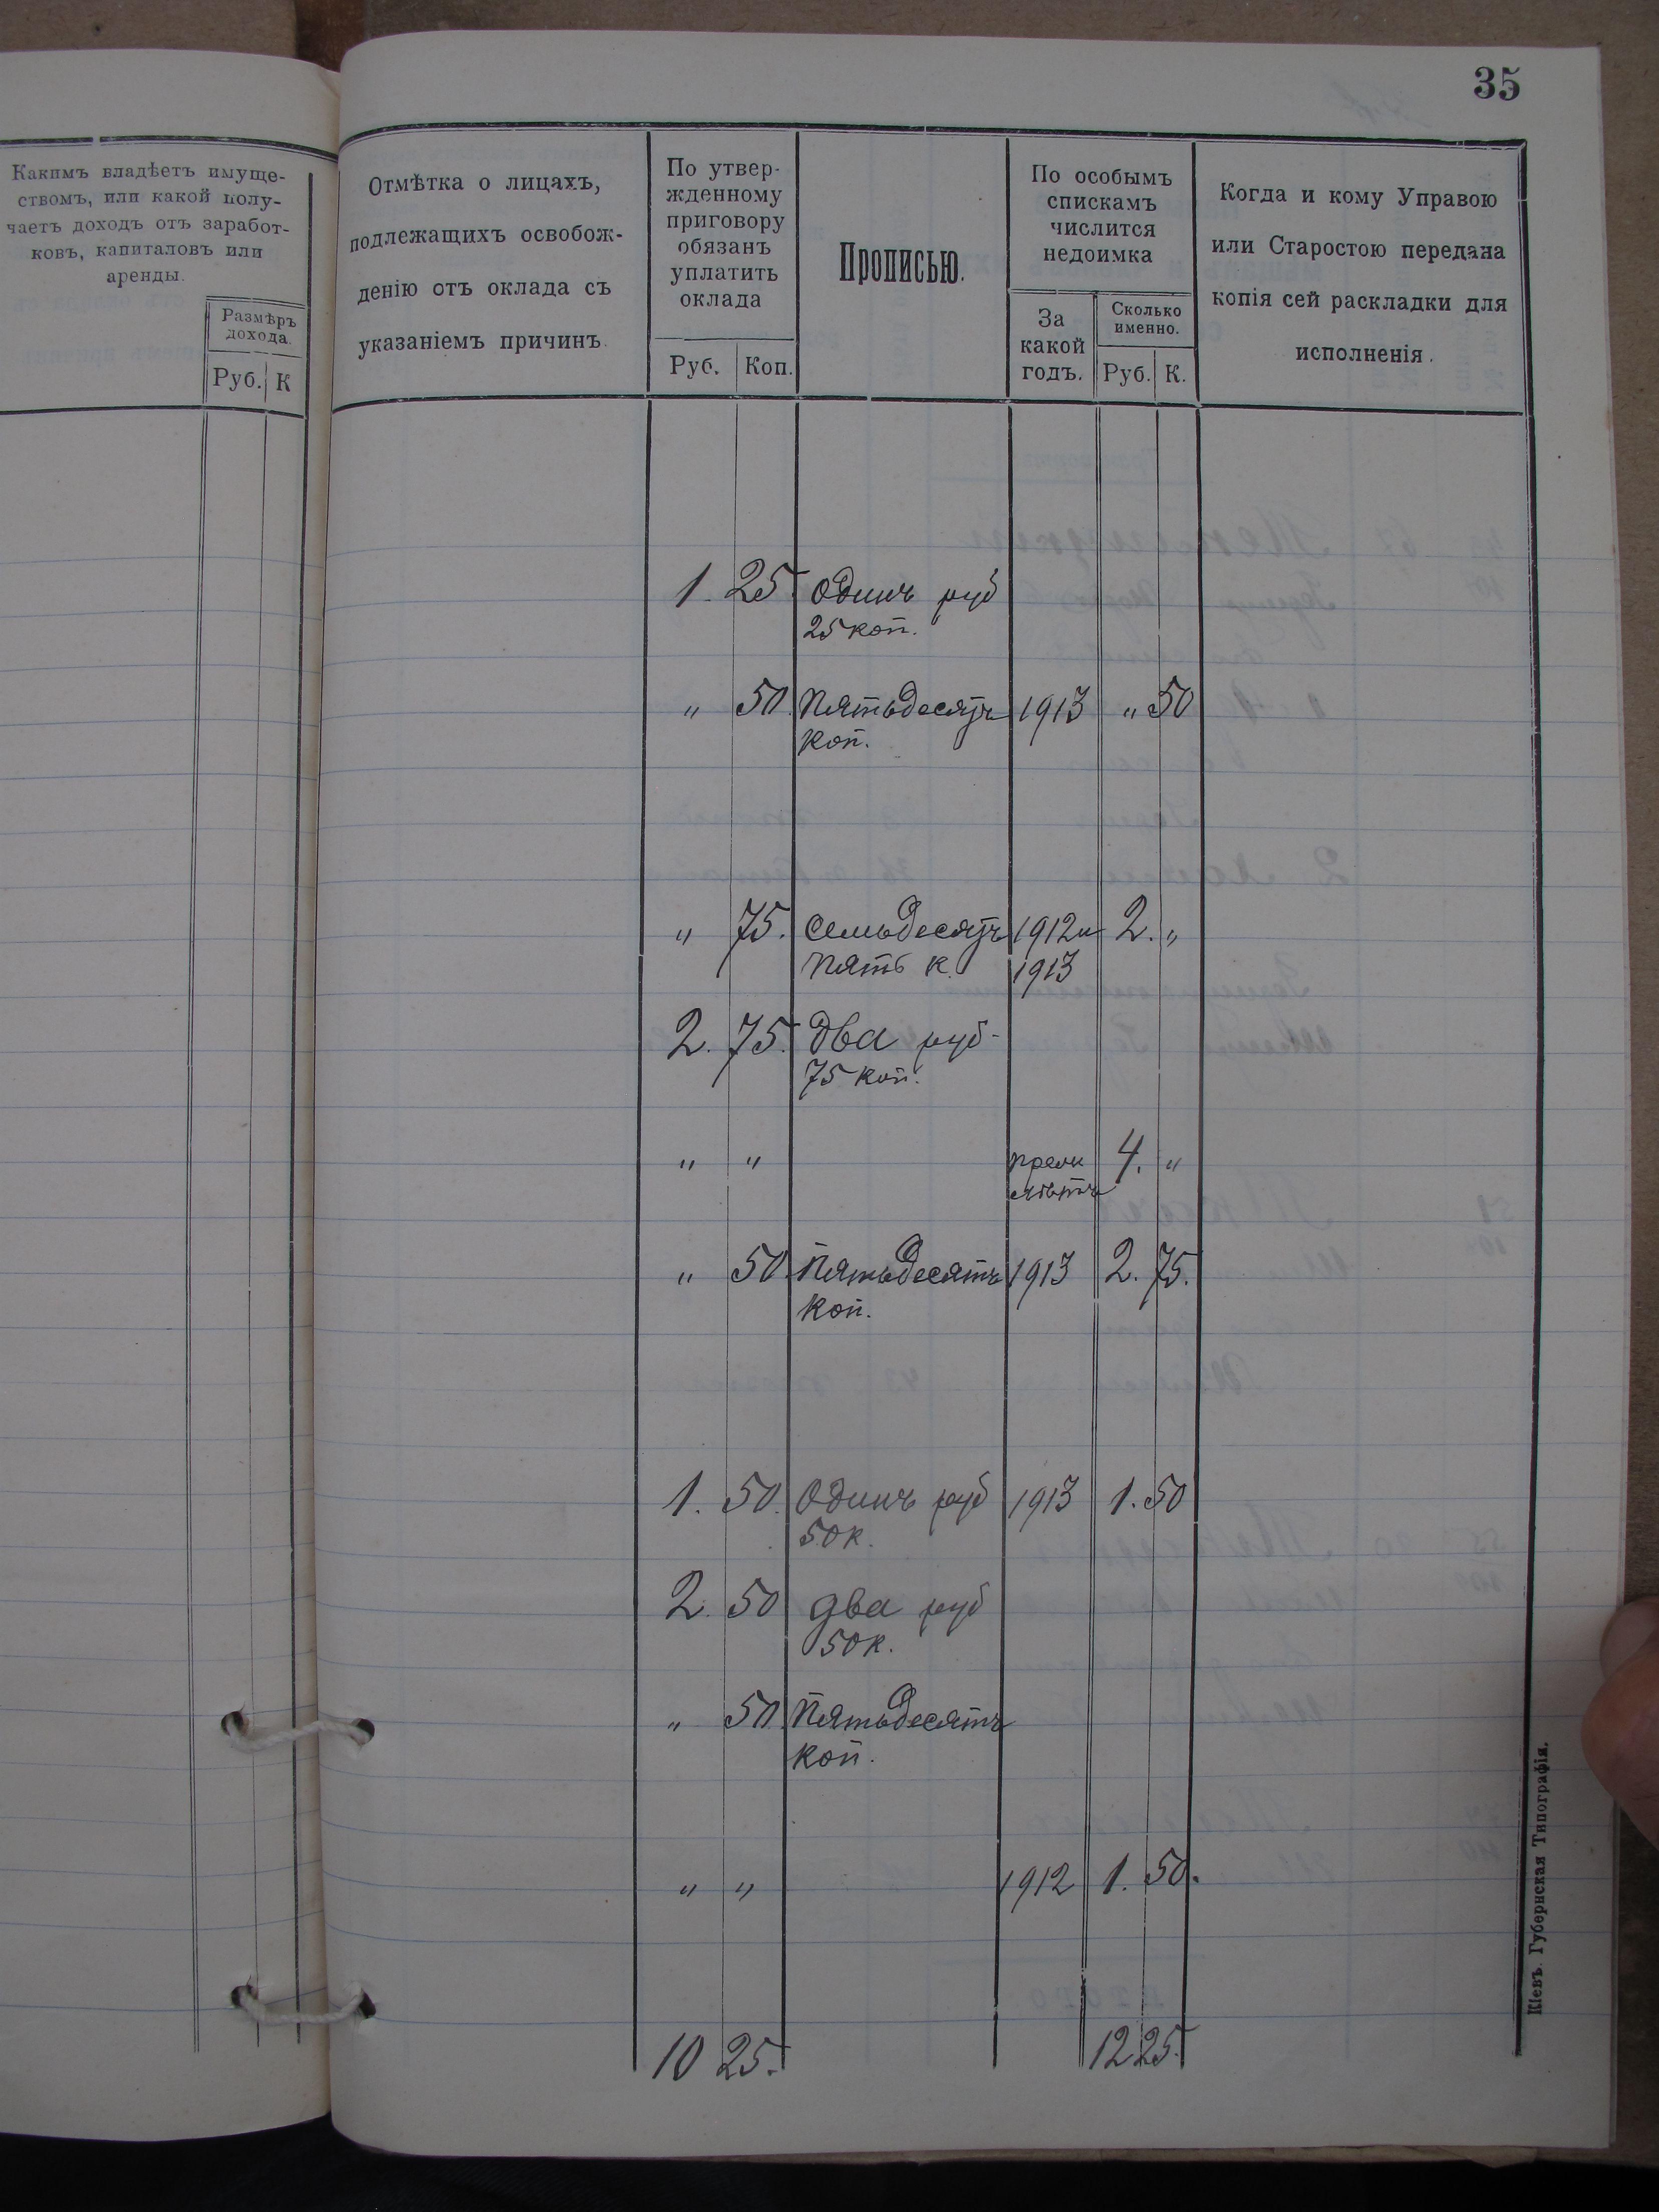 35
Какимъ владѣетъ имуще-
ствомъ, или какой полу-
чаетъ доходъ отъ заработ-
ковъ, капиталовъ или
аренды.
Размѣръ
дохода.
Руб. К
Отмѣтка о лицахъ,
подлежащихъ освобож-
денію отъ оклада съ
указаніемъ причинъ.
По утвер-
жденному
приговору
обязанъ
уплатить
оклада
Руб. Коп.
Прописью.
По особымъ
спискамъ
числится
недоимка
За
какой
годъ.
Сколько
именно.
Руб. К.
Когда и кому Управою
или Старостою передана
копія сей раскладки для
исполненія.
1. 25. Одинъ руб
25 коп.
" 50. Пятьдесятъ 1913 " 50
коп.
" 75. Семьдесятъ 1912 и 2. "
пять к. 1913
2. 75. Два руб.
75 коп.
" " 4. "
лѣтъ
" 50. Пятьдесятъ 1913 2. 75.
коп.
1. 50. Одинъ руб 1913 1. 50
50 к.
2. 50 два руб
50 к.
" 50. Пятьдесятъ
коп.
" " 1912 1. 50.
10 25. 12 25.
Кіевъ. Губернская Типографія.